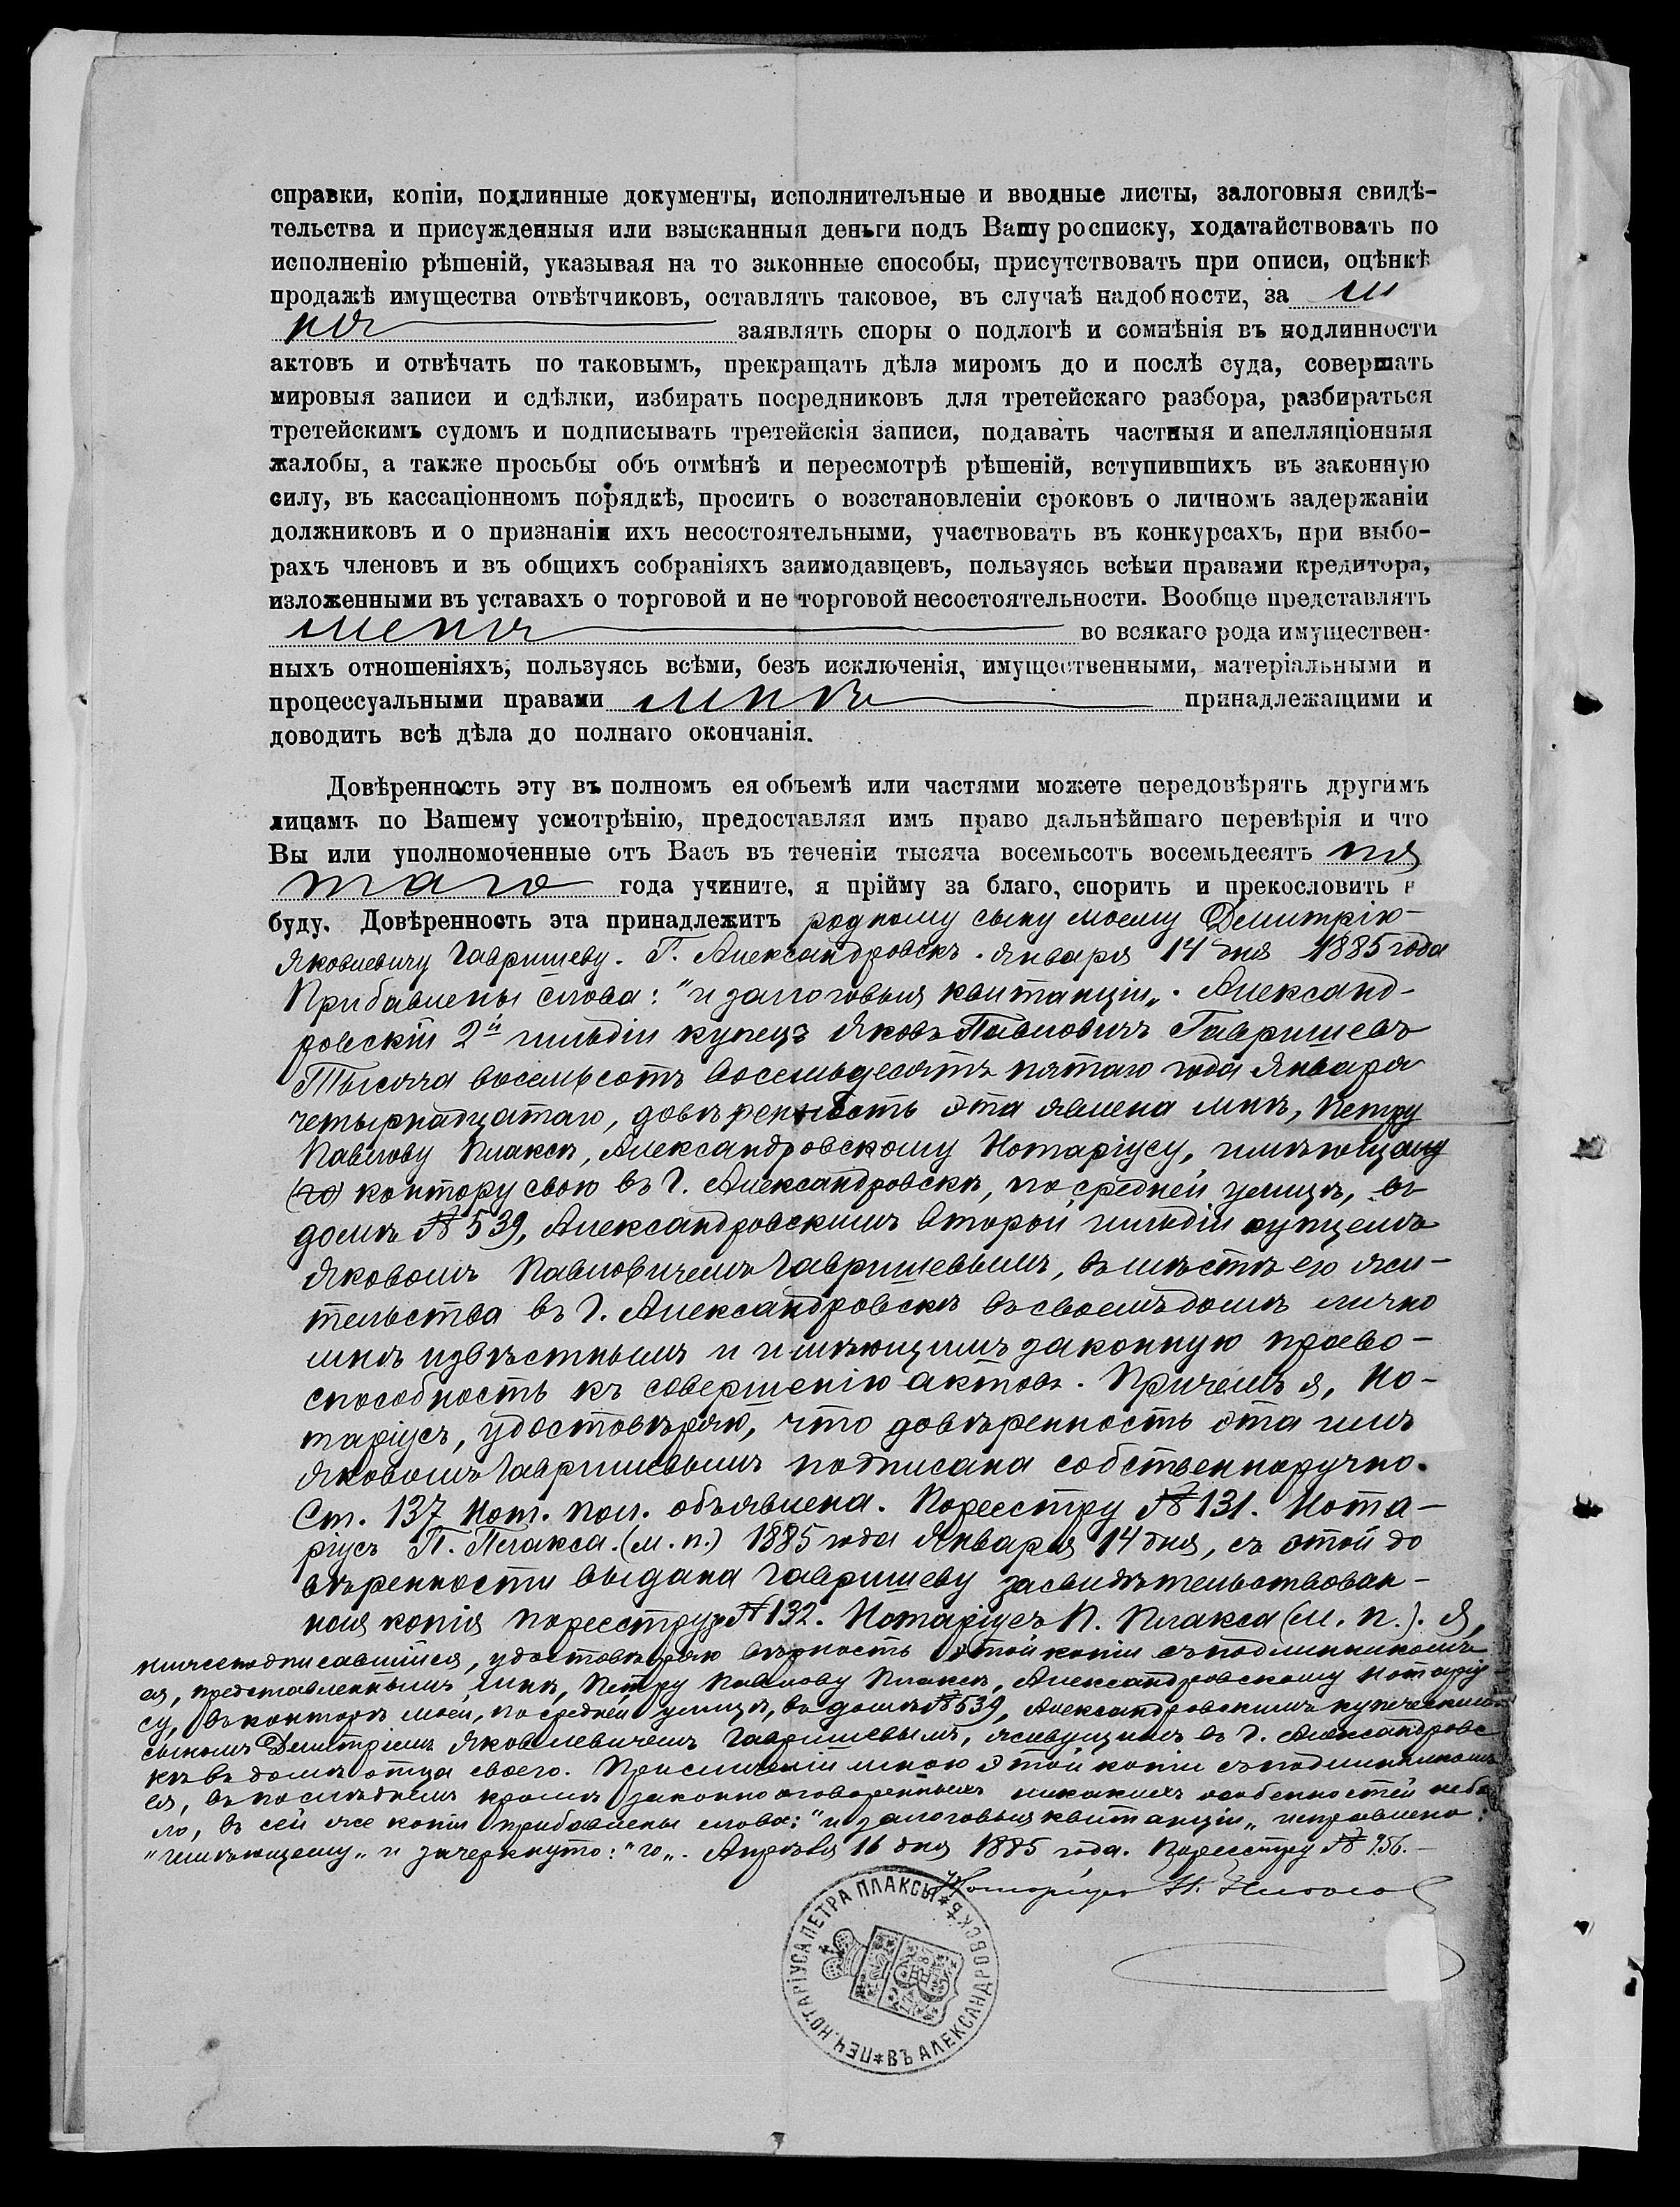 справки, копіи, подлинные документы, исполнительные и вводные листы, залоговыя свидѣ-
тельства и присужденныя или взысканныя деньги подъ Вашу росписку, ходатайствовать по
исполненію рѣшеній, указывая на то законные способы, присутствовать при описи, оцѣнкѣ
продажѣ имущества отвѣтчиковъ, оставлять таковое, въ случаѣ надобности, за ме
ня заявлять споры о подлогѣ и сомнѣнія въ подлинности
актовъ и отвѣчать по таковымъ, прекращать дѣла миромъ до и послѣ суда, совершать
мировыя записи и сдѣлки, избирать посредниковъ для третейскаго разбора, разбираться
третейскимъ судомъ и подписывать третейскія записи, подавать частныя и апелляціонныя
жалобы, а также просьбы объ отмѣнѣ и пересмотрѣ рѣшеній, вступившихъ въ законную
силу, въ кассаціонномъ порядкѣ, просить о возстановленіи сроковъ о личномъ задержаніи
должниковъ и о признаніи ихъ несостоятельными, участвовать въ конкурсахъ, при выбо-
рахъ членовъ и въ общихъ собраніяхъ заимодавцевъ, пользуясь всѣми правами кредитора,
изложенными въ уставахъ о торговой и не торговой несостоятельности. Вообще представлять
меня во всякаго рода имуществен-
ныхъ отношеніяхъ, пользуясь всѣми, безъ исключенія, имущественными, матеріальными и
процессуальными правами мнѣ принадлежащими и
доводить всѣ дѣла до полнаго окончанія.
Довѣренность эту въ полномъ ея объемѣ или частями можете передовѣрять другимъ
лицамъ по Вашему усмотрѣнію, предоставляя имъ право дальнѣйшаго перевѣрія и что
Вы или уполномоченные отъ Васъ въ теченіи тысяча восемьсотъ восемьдесятъ пя
таго года учините, я прійму за благо, спорить и прекословить н
буду. Довѣренность эта принадлежитъ родному сыну моему Димитрію
Яковлевичу Гавришеву. Г. Александровскъ. Января 14 дня 1885 года
Прибавлены слова: "и залоговыя квитанціи„. Александ-
ровскій 2й гильдіи купецъ Яковъ Павловичъ Гавришевъ
Тысяча восемьсотъ восемьдесятъ пятаго года Января
четырнадцатаго, довѣренность эта явлена мнѣ, Петру
Павлову Плаксѣ, Александровскому Нотаріусу, имѣющему
(го) контору свою въ Г. Александровскѣ, по средней улицѣ, въ
домѣ № 539, Александровскимъ второй гильдіи купцемъ
Яковомъ Павловичемъ Гавришевымъ, въ мѣстѣ его жи-
тельства въ Г. Александровскѣ въ своемъ домѣ лично
мнѣ извѣстнымъ и имѣющимъ законную право-
способность къ совершенію актовъ. Причемъ я, Но-
таріусъ, удостовѣряю, что довѣренность эта имъ
Яковомъ Гавришевымъ подписана собственноручно.
Ст. 137 Нот. пол. объявлена. По реестру № 131. Нота-
ріусъ П. Плакса. (м. п.) 1885 года Января 14 дня, съ этой до
вѣренности выдана Гавришеву засвидѣтельствован-
ная копія по реестру № 132. Нотаріусъ П. Плакса (м. п.). Я,
нижеподписавшійся, удостовѣряю вѣрность этой копіи съ подлинникомъ
ея, представленнымъ мнѣ, Петру Павлову Плаксѣ, Александровскому Нотаріу-
су, въ конторѣ моей, по средней улицѣ, въ домѣ № 539, Александровскимъ купеческимъ
сыномъ Димитріемъ Яковлевичемъ Гавришевымъ, живущимъ въ Г. Александровс
кѣ въ домѣ отца своего. При сличеніи мною этой копіи съ подлинникомъ
ея, въ послѣднемъ кромѣ законно оговоренныхъ никакихъ особенностей небы
ло, въ сей же копіи прибавлены слова: "и залоговыя квитанціи„ исправлено:
"имѣющему„ и зачеркнуто: "го„. Апрѣля 16 дня 1885 года. По реестру № 956.
Нотаріусъ П.
ПЕЧ. НОТАРІУСА ПЕТРА ПЛАКСЫ * ВЪ АЛЕКСАНДРОВСКѢ *